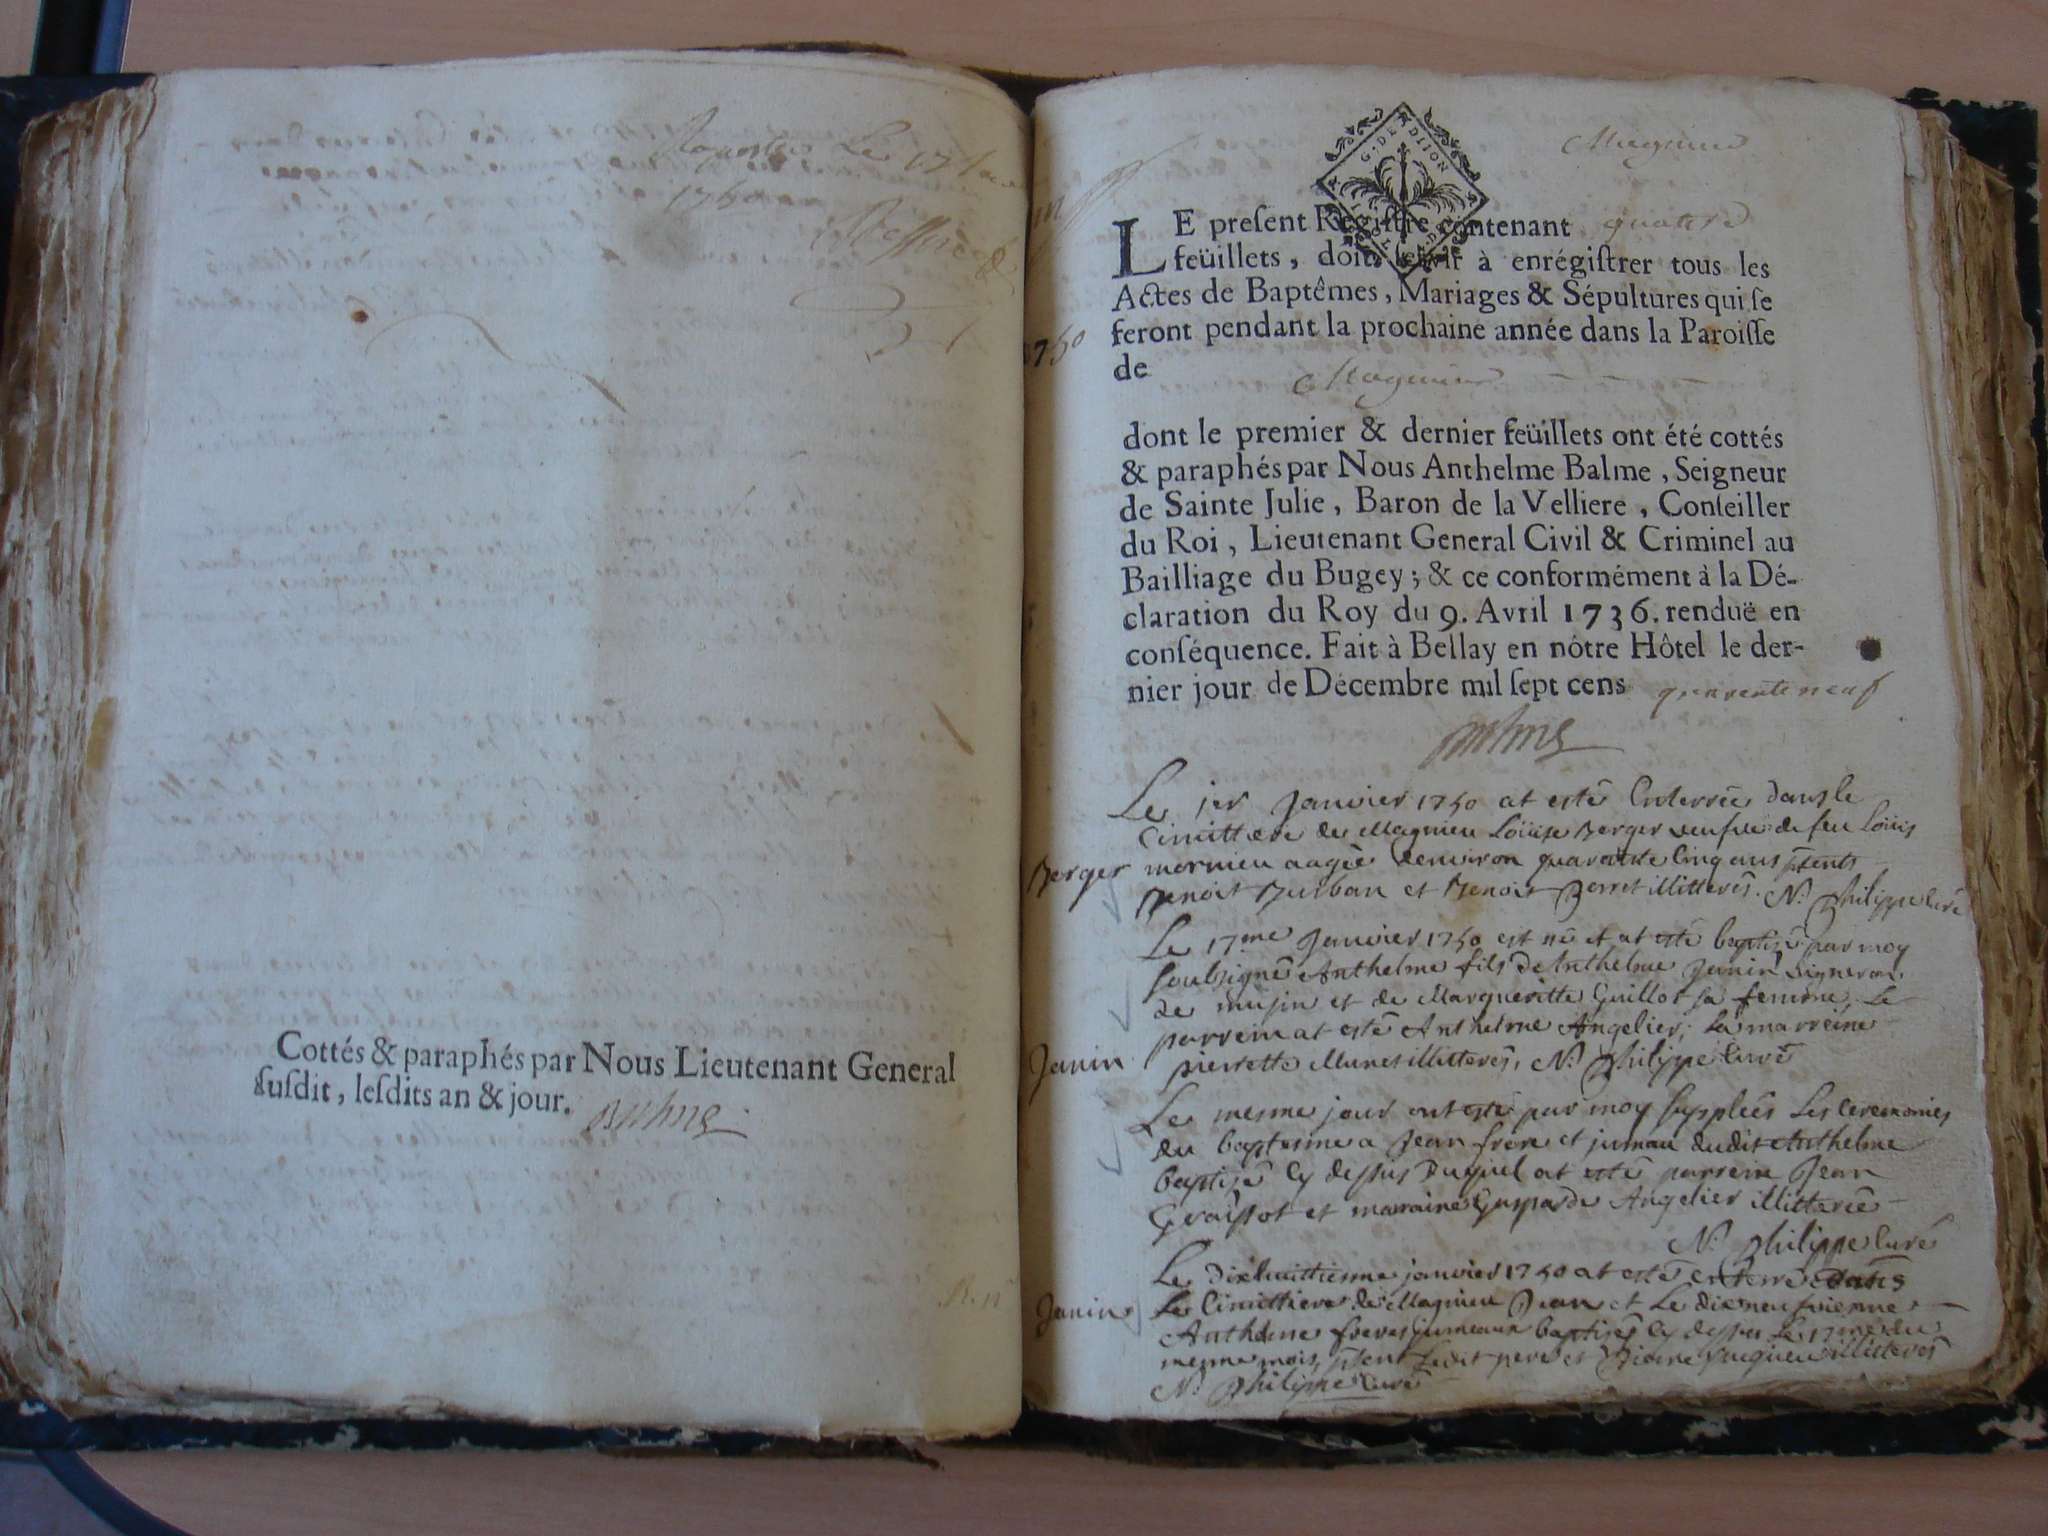 le 17
1750
Cottés & paraphés par Nous Lieutenant General
ſuſdit, leſdits an & jour.
Balme
G. DE DIJON
Magnieu
1750
LE preſent Regiſtre contenant quatre
feüillets, doit ſervir à enrégiſtrer tous les
Actes de Baptêmes, Mariages & Sépultures qui ſe
feront pendant la prochaine année dans la Paroiſſe
de Magnieu
dont le premier & dernier feüillets ont été cottés
& paraphés par Nous Anthelme Balme, Seigneur
de Sainte Julie, Baron de la Velliere, Conſeiller
du Roi, Lieutenant General Civil & Criminel au
Bailliage du Bugey; & ce conformément à la Dé-
claration du Roy du 9. Avril 1736. renduë en
conſéquence. Fait à Bellay en nôtre Hôtel le der-
nier jour de Décembre mil ſept cens quarente neuf
Balme
Le 1er Janvier 1750 at esté Enterrée dans le
Cimittere de Magnieu Loüise Berger veufve de feu Loüis
Berger
mornieu aagée denviron quarante Cinq ans pñents
Benoit Burban et Benoit illitterés. N. Philippe Curé
Le 17me Janvier 1750 est né et at esté baptisé par moy
soubsigné Anthelme fils de Anthelme Janin vigneron
de musin et de Margueritte Guillot sa femme, Le
parrein at esté Anthelme Angelier, La marreine
Janin
pierrette Munet illitterés, N. Philippe Curé
Le mesme jour ont esté par moy supplées Les Ceremonies
du baptesme a Jean frere et jumau dudit Anthelme
baptisé Cy dessus Duquel at esté parrein Jean
Graissot et marraine Gasparde Angelier illitterée
N. Philippe Curé
Le Dixhuittieme janvier 1750 at esté enterré dans
Janin
Le Cimittiere de Magnieu Jean et Le dixneufvieme
Anthelme freres jumeaux baptisés Cy dessus Le 17me du
mesme mois, pñent Ledit pere et illitterés
N. Philippe Curé